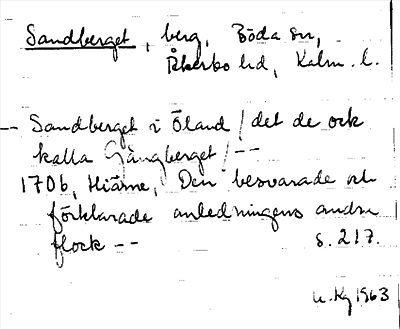 Sandberget, berg, Böda sn,
Åkerbo hd, Kalm. l.
-- Sandberget i Öland / det de ock
kalla Gångberget / --
1706, Hiärne, Den besvarade och
förklarade anledningens andra
flock --
s. 217.
1963